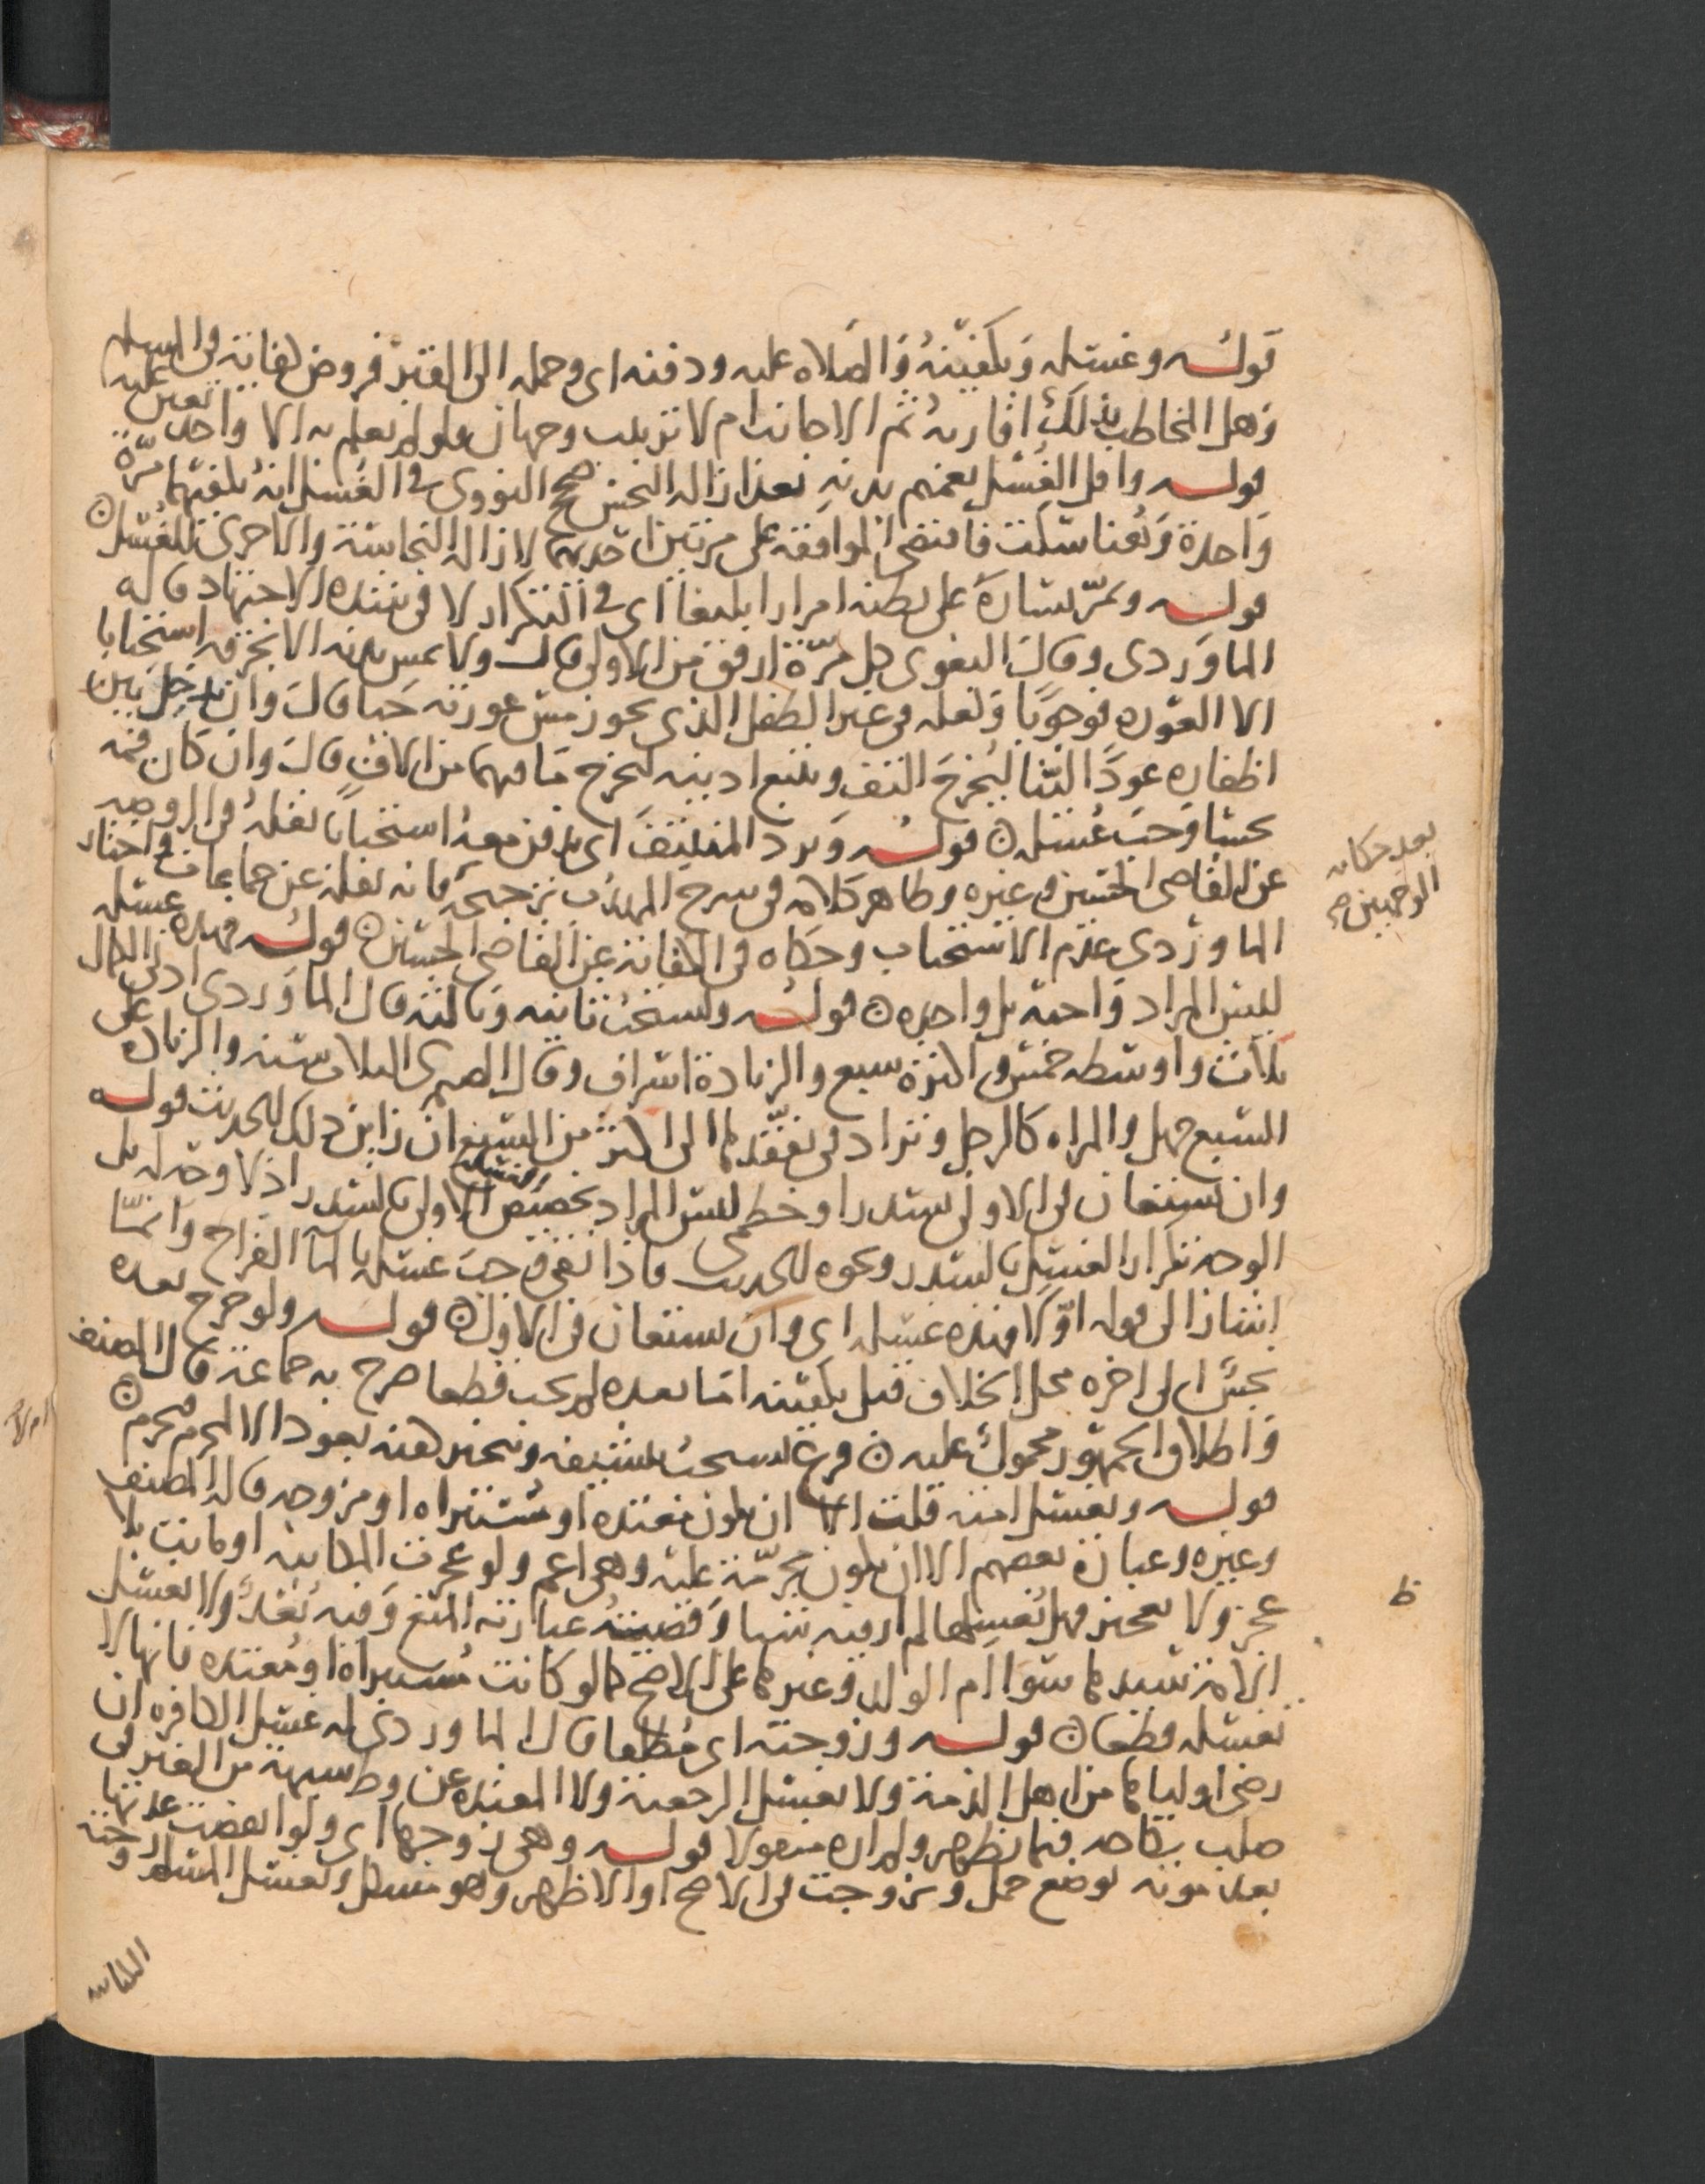 قوله وغسله وتكفينه والصلاه عليه ودفنه اى وحمله الى القبر فروض كفاية فى المسلم
وهل المخاطب بذلك اقاربه ثم الاجانب ام لا ترتيب وجهان ولو لم يعلم به الا واحد تعين عليه
قوله واقل الغسل تعميم بدنه بعد ازاله النجس صحح النووى فى الغسل انه يكفيهما مرة
واحدة وهنا سكت فاقتضى الموافقة على مرتين احديهما لازاله النجاسة والاخرى للغسل
قوله ويمر يساره على بطنه امرارا بليغا اى فى التكرار لا فى شدة الاجتهاد قاله
الماوردى وقال البغوى كل مرة ارفق من الاولى قال ولا يمس بدنه الا بخرقه استحبابا
الا العوره فوجوبا ولعله فى غير الطفل الذى يجوز مس عورته حيا قال وان يدخل بين
اظفاره عودا لينا ليخرج التفث ويتتبع اذنيه ليخرج ما فيهما من الاذى قال وان كان فمه
نجسا وجب غسله قوله ويرد المنتتف اى يدفن معه استحبابا نقله فى الروضه
عن القاضى الحسين وغيره وظاهر كلامه فى شرح المهذب ترجيحه فانه نقله عن جماعات واختار
بعد حكايه
الوجهين صح
الماوردى عدم الاستحباب وحكاه فى الكفاية عن القاضى الحسين قوله فهذه غسله
ليس المراد واحدة بل واحده قوله ويستحب ثانيه وثالثه قال الماوردى ادنى الكمال
ثلاث واوسطه خمس واكثره سبع والزيادة اسراف وقال الصيمرى الثلاث سنه والزياده على
السبع جهل والمراه كالرجل ويزاد فى تفقدها الى اكثر من السبع ان راين ذلك للحديث قوله
وان يستعان فى الاولى بسدر او خطمى ليس المراد تخصيص الغسله الاولى بالسدر اذ لا وجه له بل
الوجه تكرار الغسل بالسدر ونحوه للحديث فاذا نقى وجب غسله بالماء القراح وانما
اشار الى قوله اولا فهذه غسله اى وان يستعان فى الاولى قوله ولو خرج بعده
نجس الى اخره محل الخلاف قبل تكفينه اما بعده لم يجب قطعا صرح به جماعة قال المصنف
واطلاق الجمهور محمول عليه فرع يستحب تنشيفه وتبخيره عنه بعود الا المحرم فيحرم
قوله ويغسل امته قلت الا ان تكون معتده او مستبراه او مزوجه قاله المصنف
وغيره وعبارة بعضهم الا ان تكون محرمة عليه وهى اعم ولو عجزت المكاتبه او ماتت بلا
عجز ولا تعجيز فهل يغسلها لم ار فيه شيا وقضية عبارته المنع وفيه بعد ولا تغسل
ظ
الامة سيدها سوا ام الولد وغيرها على الاصح كما لو كانت مستبراة او معتده فانها لا
تغسله قطعا قوله وزوجته اى مطلقا قال الماوردى له غسل الكافره ان
رضى اولياها من اهل الذمة ولا يغسل الرجعية ولا المعتده عن وطء شبهة من الغير فى
صلب نكاحه فيما يظهر ولم اره منقولا قوله وهى زوجها اى ولو انقضت عدتها
بعد موته بوضع حمل وتزوجت فى الاصح او الاظهر وهو مشكل وتغسل المسلم زوجته